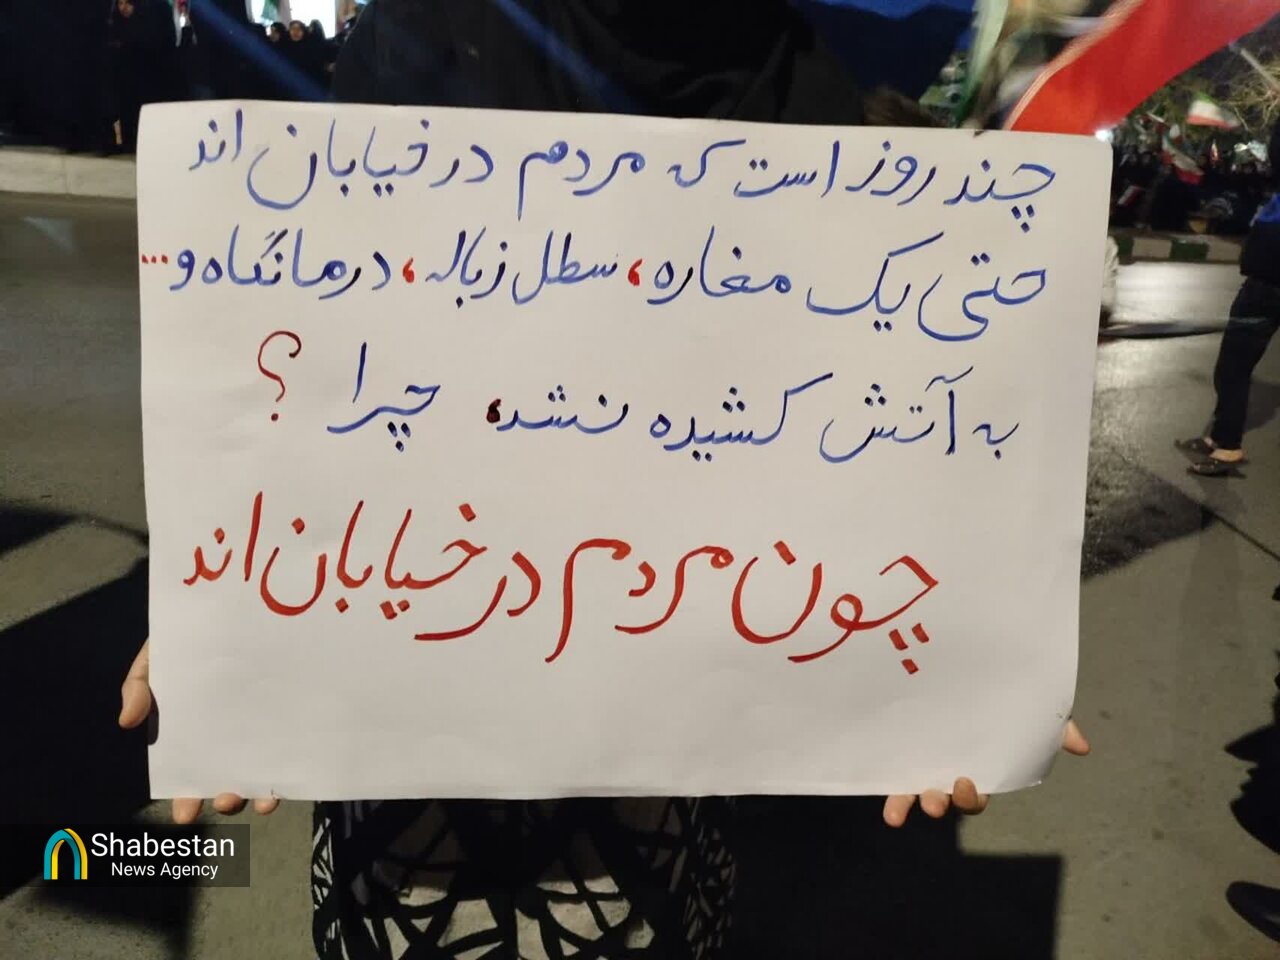 چند روز است که مردم در خیابان اند
حتی یک مغازه، سطل زباله، درمانگاه و...
به آتش کشیده نشد، چرا ؟
چون مردم در خیابان اند
Shabestan
News Agency